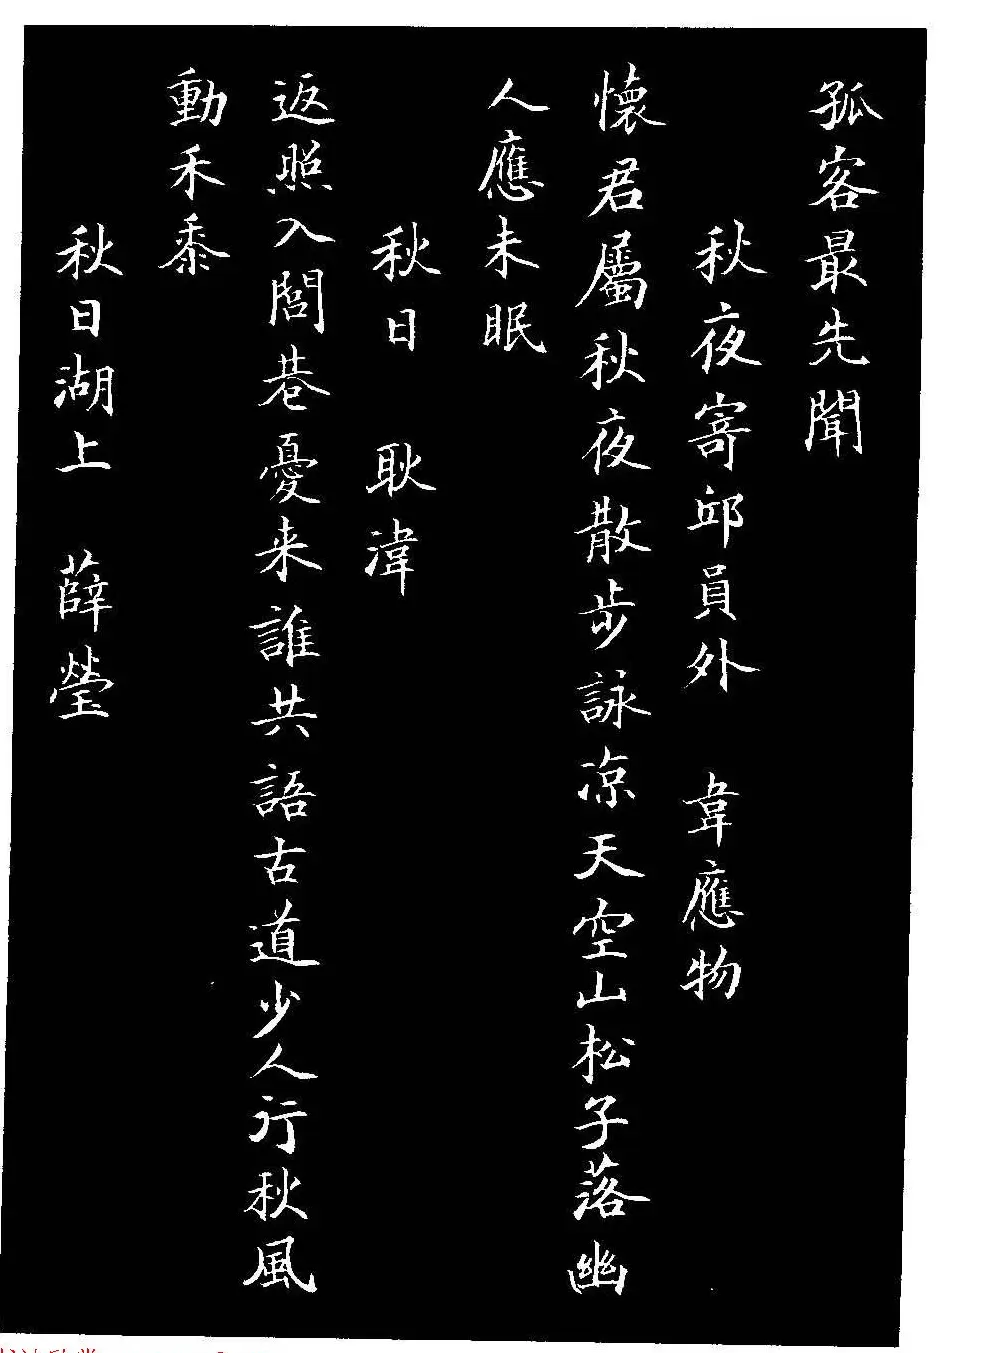 孤客最先聞
秋夜寄邱員外 韋應物
懷君屬秋夜散步詠凉天空山松子落幽
人應未眠
秋日 耿湋
返照入閭巷憂来誰共語古道少人行秋風
動禾黍
秋日湖上 薛瑩